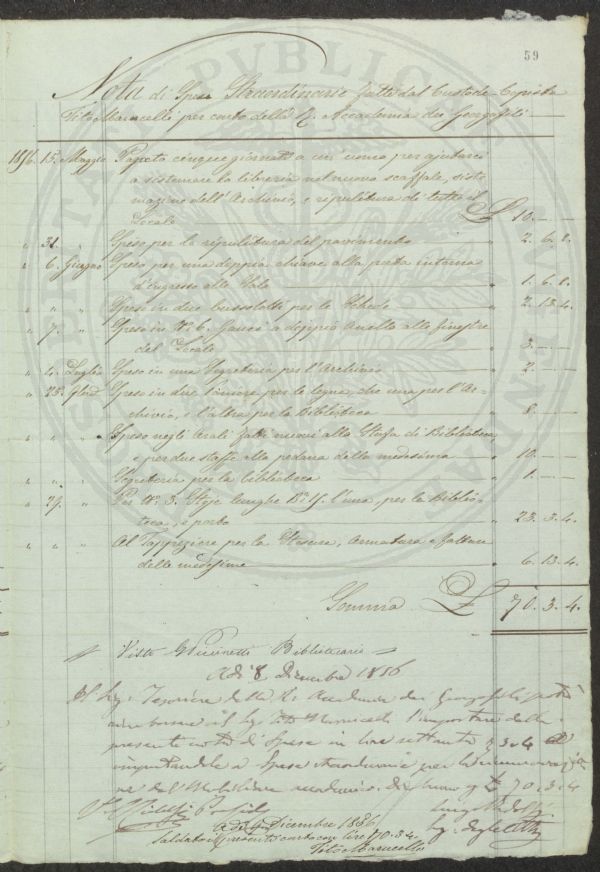 59
Nota di Spese Straordinarie fatte dal Custode-Copista
Tito Marucelli per conto della R. Accademia dei Georgofili
1856. 15. Maggio Pagata cinque giornate a un' uomo per ajutare
a sistemare la libreria nel nuovo scaffale, siste
mazione dell'Archivio, e ripulitura di tutto il
Locale £ 10. — —
" 31. " Spese per la ripulitura del pavimento " 2. 6. 8.
" 6. Giugno Spese per una doppia chiave alla porta interna
d'ingresso alle Sale " 1. 6. 8.
" " " Spese in due bussolotti per le Schede " 2. 13. 4.
" 7. " Spese in N.° 6. Ganci a doppio Anello alle finestre
del Locale " 3. — —
" 4. Luglio Spese in una Segreteria per l'Archivio " 2. — —
" 25. 9bre Spese in due per la legna, che una per l'Ar-
chivio, e l'altra per la Biblioteca " 8. — —
" " " Spese negli Arali fatti nuovi alla Stufa di Biblioteca
e per due staffe alla pedana della medesima " 10. — —
" " " Segreteria per la biblioteca " 1. — —
" 29. " Per N.° 3. Stoje lunghe B.a 15. l'una, per la Biblio-
teca, e porto " 23. 3. 4.
" " " Al Tappezziere per la Stesura, Armatura e fattura
delle medesime " 6. 13. 4.
Somma £ 70. 3. 4.
Visto Bibliotecario
Adì 8. Dicembre 1856
Il Sig. Tesoriere della R. Accademia dei Georgofili potrà
rimborsare il Sig. Tito Marucelli l'importare della
presente nota di Spese in lire settanta 3. 4
imputandole a Spese Straordinarie per
del Mobiliare 70. 3. 4
Adì Dicembre 1856
Saldato il presente conto con lire 70. 3. 4.
Tito Marucelli